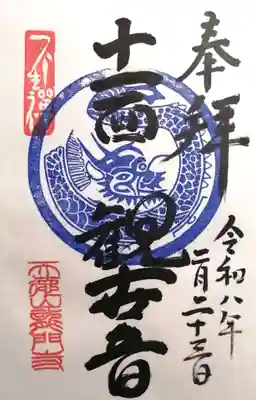 奉拝
令和八年
二月二十三日
十一面
観世音